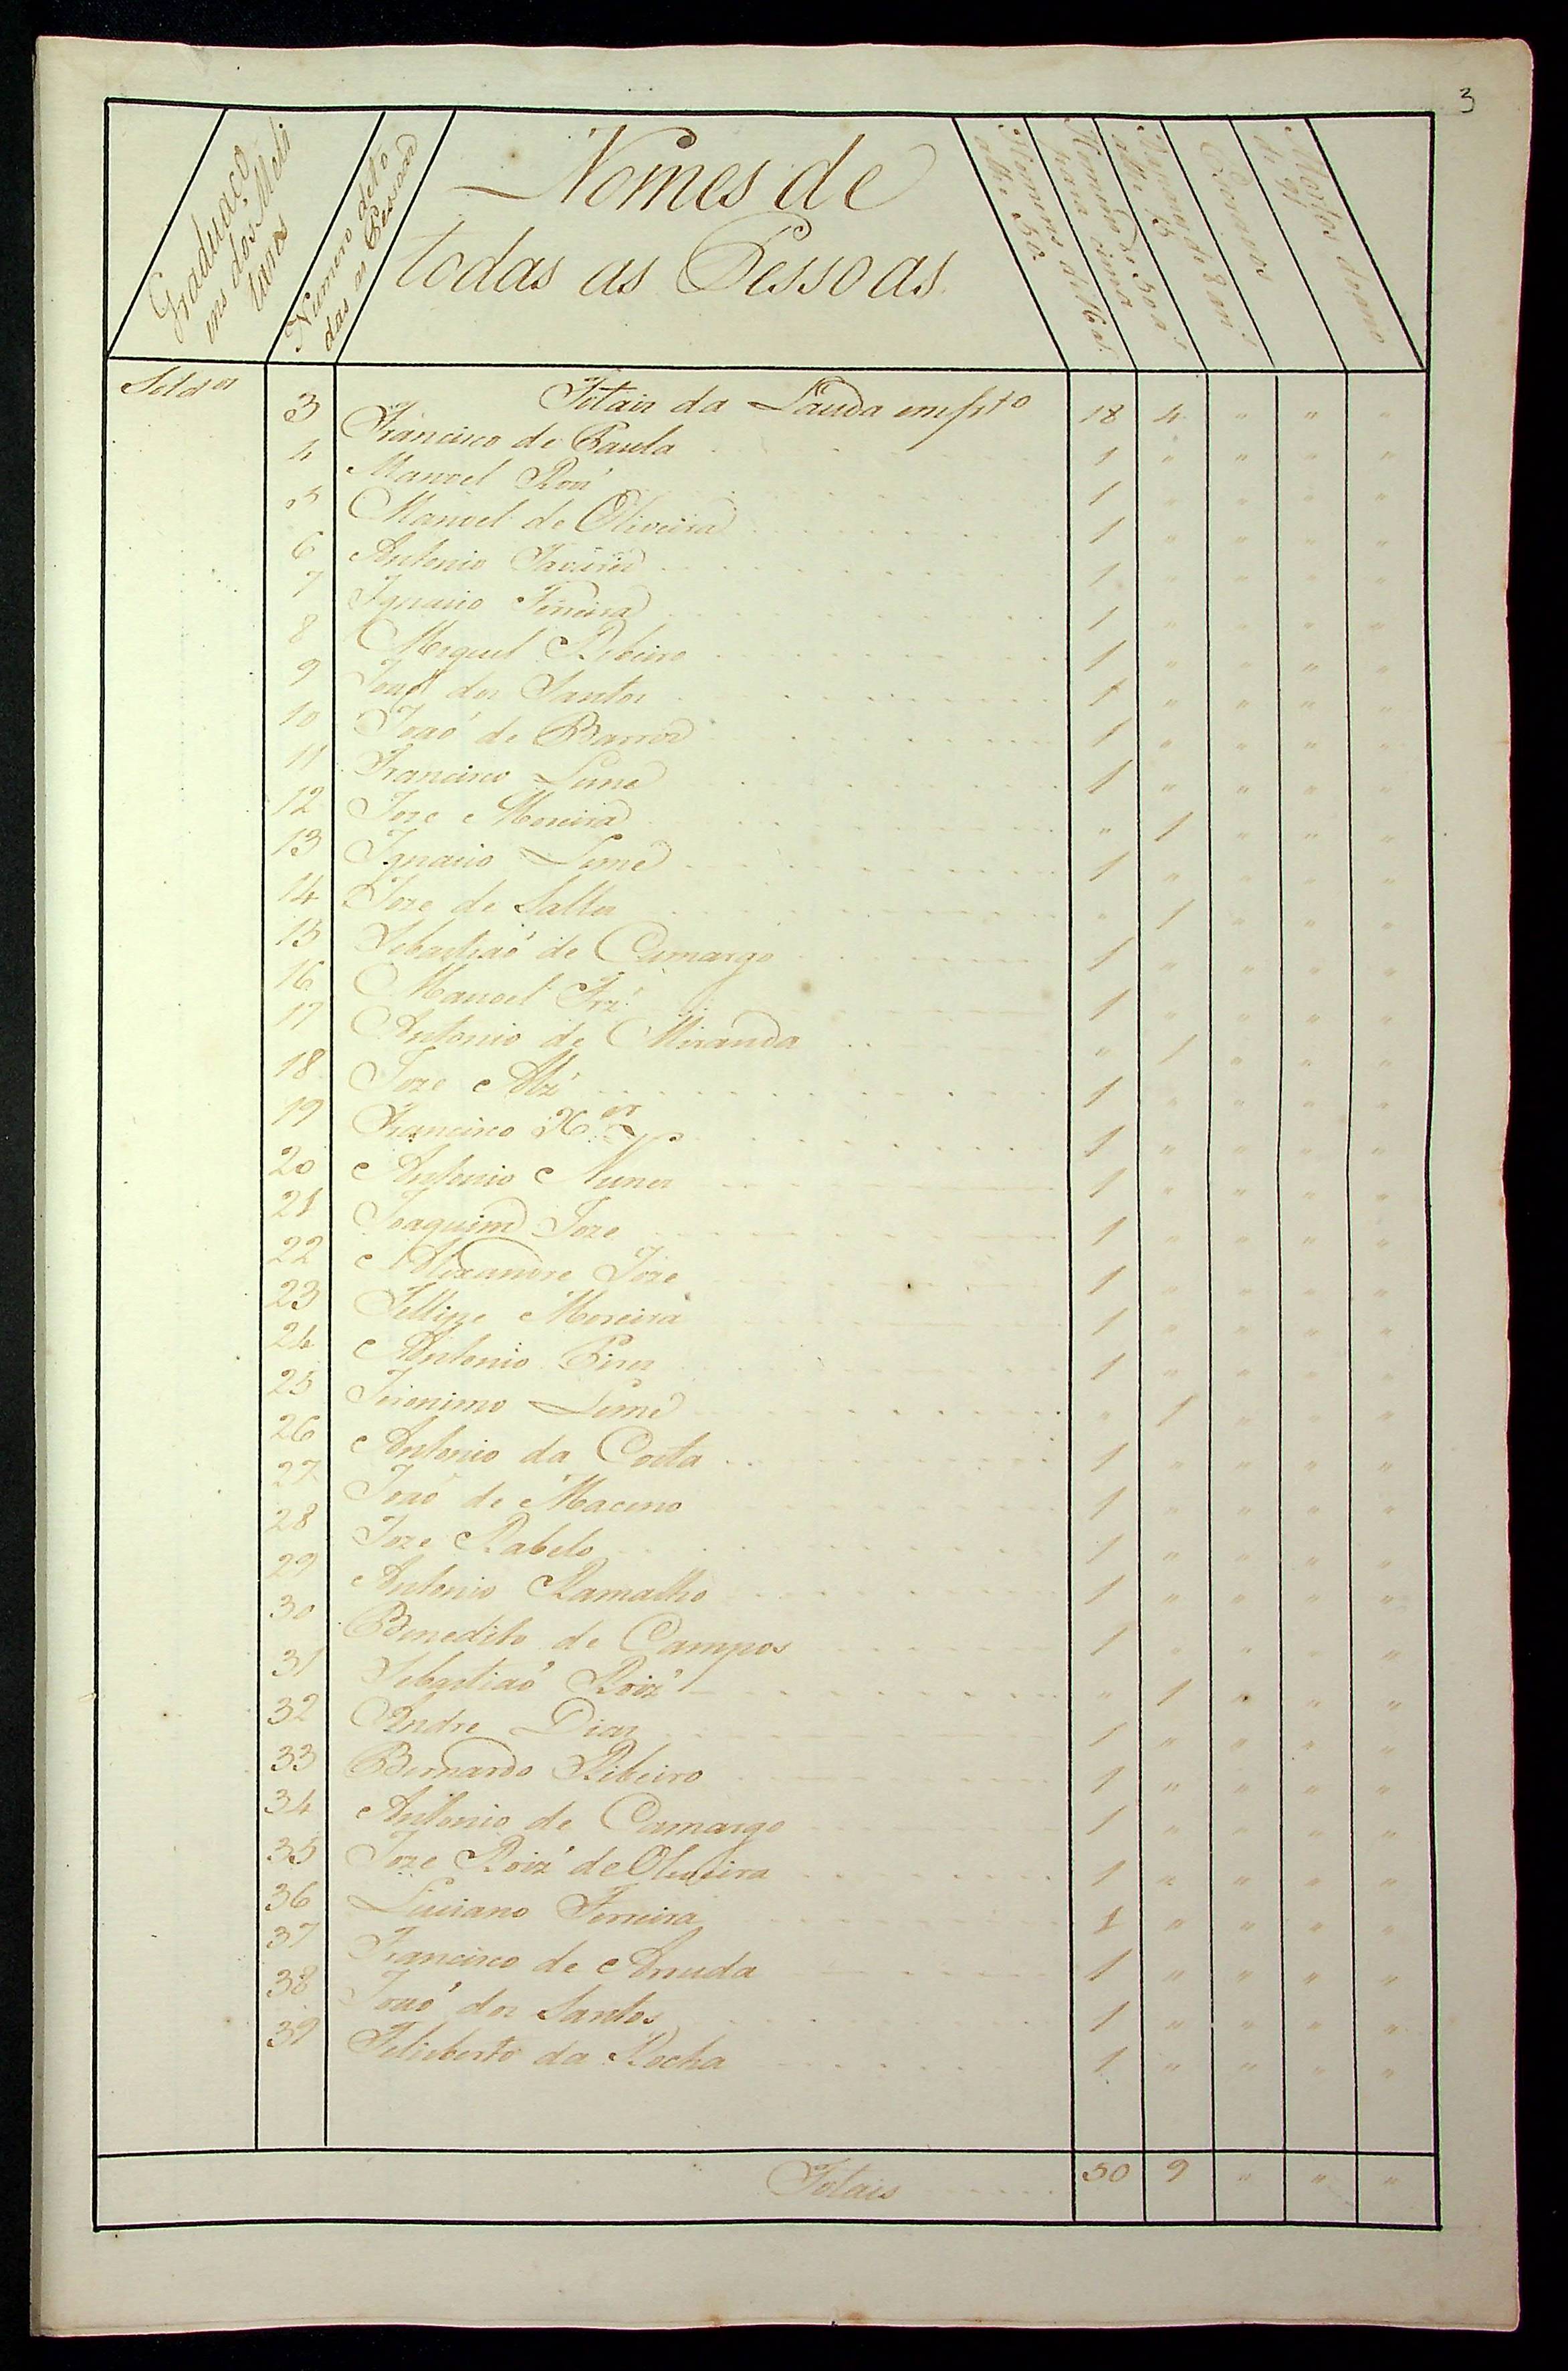 3
Graduaço
ens dos Meli
tares
Numero detô
das as Pessoas
Nomes de
todas as Pessoas
Homens de 16 a.
athe 50
Homens de 50 a.
para cima
Rapazes de 8 an.s
athe 15
Mortos do ano
Sold.os
Totais da Lauda emfr.to 18 4 " " "
3 Francisco de Paula 1 " " " "
4 Manoel Roiz' 1 " " " "
5 Manoel de Oliveira 1 " " " "
6 Antonio Tavares 1 " " " "
7 Ignacio Ferreira 1 " " " "
8 Miguel Ribeiro 1 " " " "
9 Joaõ dos Santos 1 " " " "
10 Joaõ de Barros 1 " " " "
11 Francisco Leme 1 " " " "
12 Joze Moreira " 1 " " "
13 Ignacio Leme 1 " " " "
14 Joze de Salles " 1 " " "
15 Sebastiaõ de Camargo 1 " " " "
16 Manoel Frz' 1 " " " "
17 Antonio de Miranda " 1 " " "
18 Joze Alz' 1 " " " "
19 Francisco X.er 1 " " " "
20 Antonio Nunes 1 " " " "
21 Joaquim Joze 1 " " " "
22 Alixandre Joze 1 " " " "
23 Fellipe Moreira 1 " " " "
24 Antonio Pires 1 " " " "
25 Jeronimo Leme " 1 " " "
26 Antonio da Costa 1 " " " "
27 Joaõ de Macedo 1 " " " "
28 Joze Rabelo 1 " " " "
29 Antonio Ramalho 1 " " " "
30 Benedito de Campos 1 " " " "
31 Sebastiaõ Roiz' " 1 " " "
32 Andre Dias 1 " " " "
33 Bernardo Ribeiro 1 " " " "
34 Antonio de Camargo 1 " " " "
35 Joze Roiz' de Oliveira 1 " " " "
36 Luciano Ferreira 1 " " " "
37 Francisco de Arruda 1 " " " "
38 Joaõ dos Santos 1 " " " "
39 Felisberto da Rocha 1 " " " "
Totais 50 9 " " "